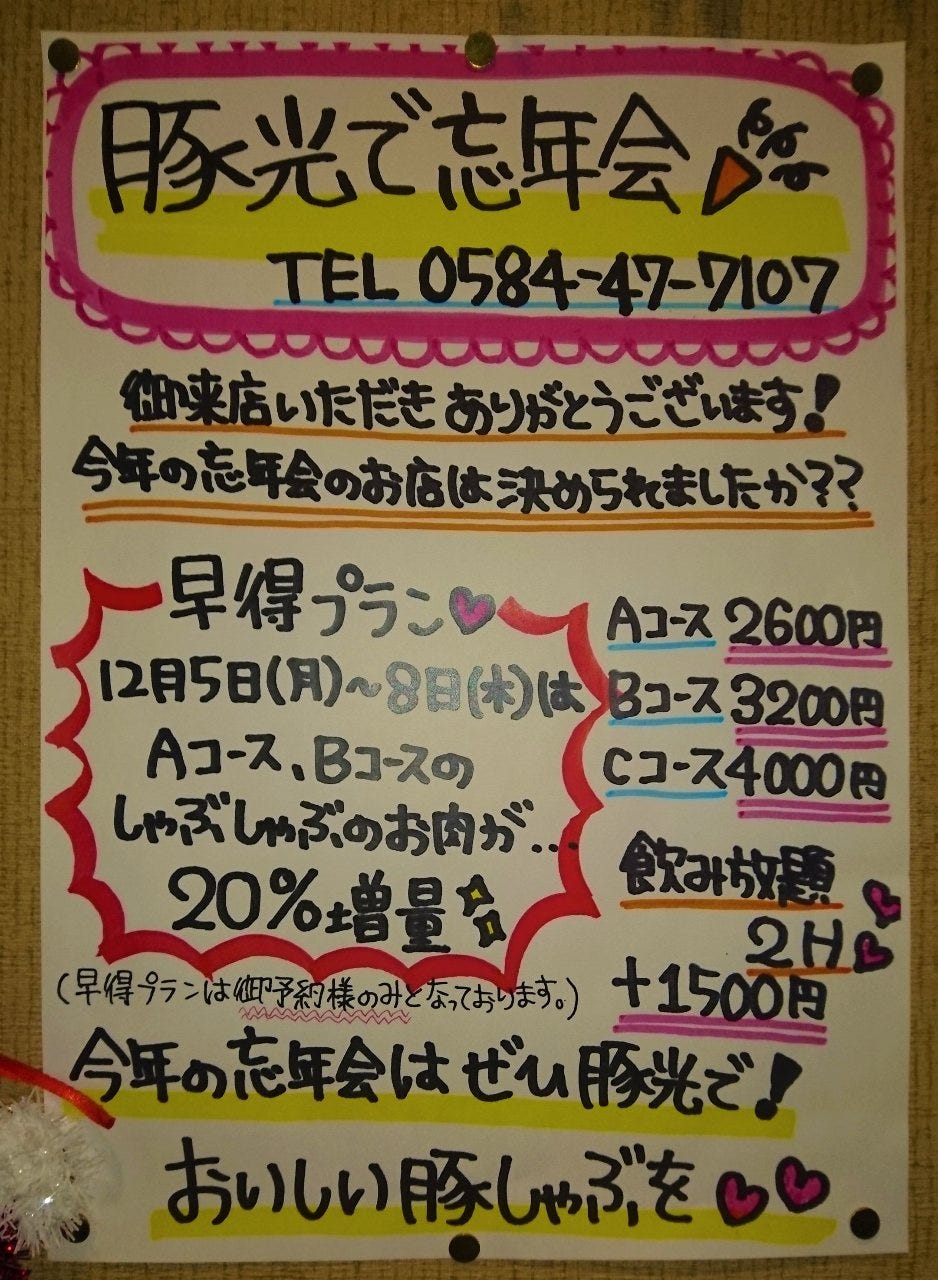 豚光で忘年会
TEL 0584-47-7107
御来店いただきありがとうございます!
今年の忘年会のお店は決められましたか??
早得プラン
12月5日(月)~8日(木)は
Aコース、Bコースの
しゃぶしゃぶのお肉が...
20%増量
(早得プランは御予約様のみとなっております。)
Aコース 2600円
Bコース 3200円
Cコース 4000円
飲み放題
2H
+1500円
今年の忘年会はぜひ豚光で!
おいしい豚しゃぶを